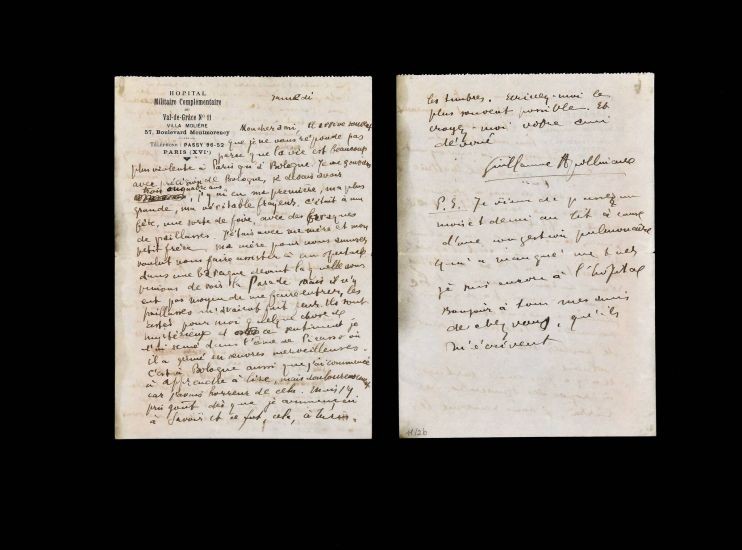 HOPITAL
Militaire Complémentaire
DU
Val-de-Grâce Nº 11
VILLA MOLIÈRE
57, Boulevard Montmorency
TÉLÉPHONE : PASSY 96-52
PARIS (XVIᵉ)
samedi
Mon cher ami,
que je ne vous réponde pas
parce que la vie est beaucoup
plus violente à Paris qu'à Bologne. Je me souviens
avec précision de Bologne, je devais avoir
trois ou quatre ans
j'y ai eu ma première, ma plus
grande, ma véritable frayeur. c'était à une
fête, une sorte de foire, avec des baraques
de paillasses. J'étais avec ma mère et mon
petit frère. ma mère pour nous amuser
voulut nous faire assister à un spectacle
dans une baraque devant laquelle nous
venions de voir la Parade mais il n'y
eut pas moyen de me faire entrer, les
paillasses m'avaient fait peur. Ils sont
restés pour moi quelque chose de
mystérieux et ce sentiment je
l'ai semé dans l'âme de Picasso où
il a germé en œuvres merveilleuses.
C'est à Bologne aussi que j'ai commencé
à apprendre à lire, mais douloureusement
car j'avais horreur de cela. Mais j'y
pris goût dès que je commençai
à savoir et ce fut, cela, à
les timbres. Écrivez-moi le
plus souvent possible. Et
croyez-moi votre ami
dévoué
Guillaume Apollinaire
P.S. Je viens de passer un
mois et demi au lit à cause
d'une congestion pulmonaire
qui a manqué me tuer
je suis encore à l'hôpital
Bonjour à tous mes amis
de chez vous, qu'ils
m'écrivent